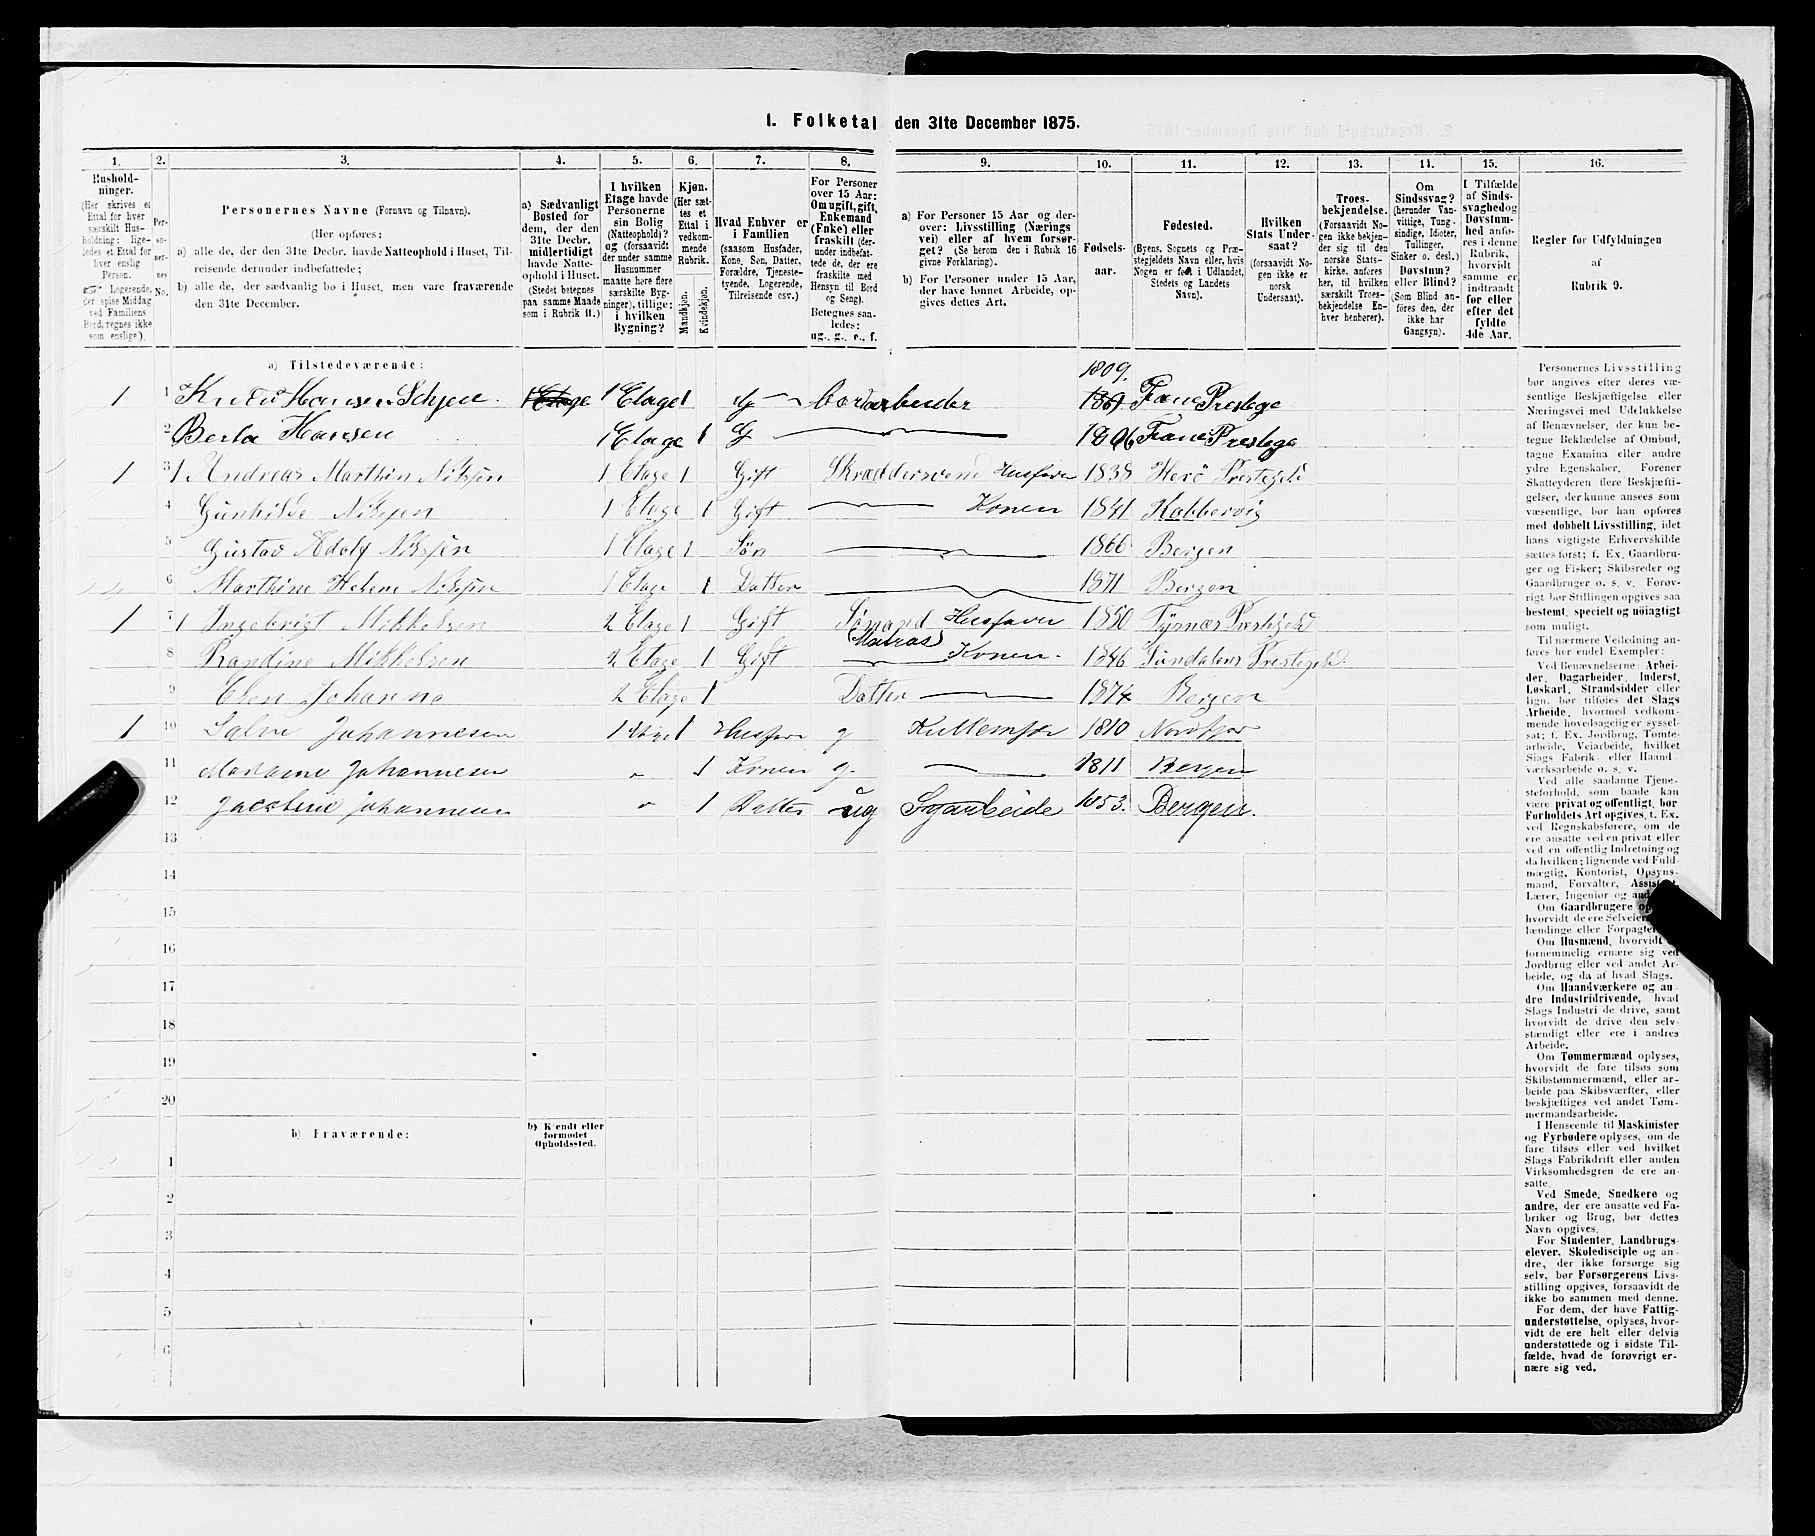 1. Folketal den 31te December 1875.
1. 2. 3. 4. 5. 6. 7. 8. 9. 10. 11. 12. 13. 14. 15. 16.
Husholdninger. (Her skrives et Ettal for hver særskilt Husholdning; ligeledes et Ettal for hver enslig Person. Logerende, der spise Middag ved Familiens Bord, regnes ikke som enslige).
Personernes No.
Personernes Navne (Fornavn og Tilnavn).
(Her opføres:
a) alle de, der den 31te Decbr. havde Natteophold i Huset, Tilreisende derunder indbefattede;
b) alle de, der sædvanlig bo i Huset, men vare fraværende den 31te December.
a) Sædvanligt Bosted for dem, der den 31te Decbr. midlertidigt havde Natteophold i Huset. (Stedet betegnes paa samme Maade som i Rubrik 11.)
I hvilken Etage havde Personerne sin Bolig (Natteophold)? og (forsaavidt der under samme Husnummer maatte høre flere særskilte Bygninger), tillige: i hvilken Bygning?
Kjøn. (Her sættes et Ettal i vedkommende Rubrik. Mandkjøn. Kvindekjøn.
Hvad Enhver er i Familien (saasom Husfader, Kone, Søn, Datter, Forældre, Tjenestetyende, Logerende, Tilreisende osv.)
For Personer over 15 Aar: Om ugift, gift, Enkemand (Enke) eller fraskilt (derunder indbefattede de, der ere fraskilte med Hensyn til Bord og Seng). Betegnes saaledes: ug., g., e., f.
a) For Personer 15 Aar og derover: Livsstilling (Næringsvei) eller af hvem forsørget? (Se herom den i Rubrik 16 givne Forklaring).
b) For Personer under 15 Aar, der have lønnet Arbeide, opgives dettes Art.
Fødselsaar.
Fødested. (Byens, Sognets og Præstegjeldets Navn eller, hvis Nogen er født i Udlandet, Stedets og Landets Navn).
Hvilken Stats Undersaat? (forsaavidt Nogen ikke er norsk Undersaat).
Troesbekjendelse. (Forsaavidt Nogen ikke bekjender sig til den norske Statskirke, anføres her, til hvilken særskilt Troesbekjendelse Enhver henhører).
Om Sindssvag? (herunder Vanvittige, Tungsindige, Idioter, Tullinger, Sinker o. desl.) Døvstum? eller Blind? (Som Blind anføres den, der ikke har Gangsyn).
I Tilfælde af Sindssvaghed og Døvstumhed anføres i denne Rubrik, hvorvidt samme er indtraadt før eller efter det fyldte 4de Aar.
Regler for Udfyldningen af Rubrik 9.
a) Tilstedeværende:
1809.
1 1 Knud Hansen 1 Etage 1 Etage 1 g 
2 Berta Hansen 1 Etage 1 G 1806 Fane Prestege
1 3 1 Andreas Marthin Nilsen 1 Etage 1 Gift Skræddersvend Husfader 1838 Herö Prestegield
4 Gunhilde Nilsen 1 Etage 1 Gift Konen 1841
5 Gustav Adolf Nilsen 1 Etage 1 Søn 1866 Bergen
6 Marthine Helene Nilsen 1 Etage 1 Datter 1871 Bergen
1 7 1 Ingebrigt Mikkelsen 2 Etage 1 Gift Sømand Husfader 1850
Matros
8 Randine Mikkelsen 2 Etage 1 Gift Konen. 1846 Sundalens Prestegield
9 Johanna 2 Etage 1 Datter 1874 Bergen
1 10 Johannesen 1 Etage 1 Husfar g 1810 Nordfjor
11 Madame Johannesen " 1 Konen g. 1811 Bergen
12 Jacobine Johannesen " 1 Datter ug 1853. Bergen.
13
14
15
16
17
18
19
20
b) Fraværende:
b) Kjendt eller formodet Opholdssted.
1
2
3
4
5
6
Personernes Livsstilling
bør angives efter deres væsentlige
Beskjæftigelse eller
Næringsvei med Udelukkelse
af Benævnelser, der kun betegne
Beklædelse af Ombud,
tagne Examina eller andre
ydre Egenskaber. Forener
Skatteyderen flere Beskjæftigelser,
der kunne ansees som
væsentlige, bør han opføres
med dobbelt Livsstilling, idet
hans vigtigste Erhvervskilde
sættes først; f. Ex. Gaardbruger
og Fisker; Skibsreder og
Gaardbruger o. s. v. Forøvrigt
bør Stillingen opgives saa
bestemt, specielt og nøiagtigt
som muligt.
Til nærmere Veiledning anføres
her endel Exempler:
Ved Benævnelserne: Arbeider,
Dagarbeider, Inderst,
Løskarl, Strandsidder eller
lign. bør tilføies det Slags
Arbeide, hvormed vedkommende
hovedsagelig er sysselsat;
f. Ex. Jordbrug, Tomtearbeide,
Veiarbeide, hvilket
Slags Fabrik- eller Haandværksarbeide
o. s. v.
Ved alle saadanne Tjenesteforhold,
som baade kan
være privat og offentligt, bør
Forholdets Art opgives, t. Ex.
ved Regnskabsførere, om de
ere ansatte ved en privat eller
ved en offentlig Indretning og
da hvilken; lignende ved Fuldmægtig,
Kontorist, Opsynsmand,
Forvalter,
Lærer, Ingeniør og
Om Gaardbrugere
hvorvidt de ere Selveiere,
lændinge eller
Om Husmænd, hvorvidt
fornemmelig ernære sig ved
Jordbrug eller ved andet Arbeide,
og da af hvad Slags.
Om Haandværkere og andre
Industridrivende, hvad
Slags Industri de drive, samt
hvorvidt de drive den selvstændigt
eller ere i andres
Arbeide.
Om Tømmermænd oplyses,
hvorvidt de fare tilsøs som
Skibstømmermænd, eller arbeide
paa Skibsværfter, eller
beskjæftiges ved andet Tømmermandsarbeide.
I Henseende til Maskinister
og Fyrbødere oplyses, om de
fare tilsøs eller ved hvilket
Slags Fabrikdrift eller anden
Virksomhedsgren de ere ansatte.
Ved Smede, Snedkere og
andre, der ere ansatte ved Fabriker
og Brug, bør dettes
Navn opgives.
For Studenter, Landbrugselever,
Skoledisciple og andre,
der ikke forsørge sig
selv, bør Forsørgerens Livsstilling
opgives, forsaavidt de
ikke bo sammen med denne.
For dem, der have Fattigunderstøttelse,
oplyses, hvorvidt
de ere helt eller delvis
understøttede og i sidste Tilfælde,
hvad de forøvrigt ernære
sig ved.